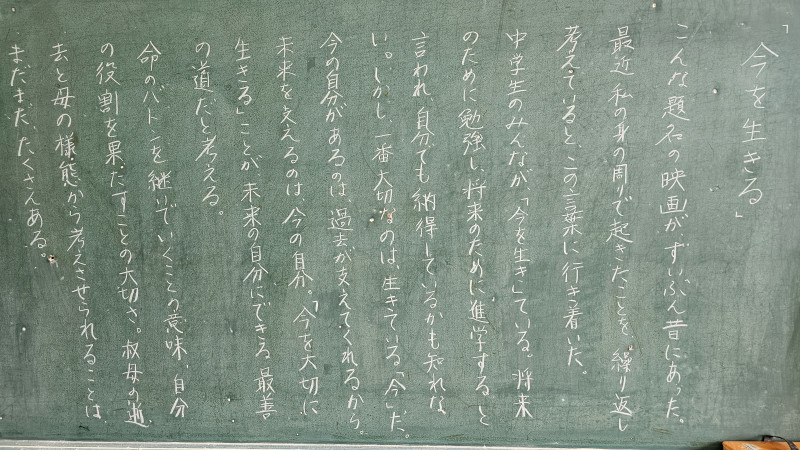 「今を生きる」
こんな題名の映画がずいぶん昔にあった。
最近私の身の周りで起きたことを、繰り返し
考えていると、この言葉に行き着いた。
中学生のみんなが、「今を生き」ている。将来
のために勉強し、将来のために進学すると
言われ、自分でも納得しているかも知れな
い。しかし、一番大切なのは、生きている「今」だ。
今の自分があるのは、過去が支えてくれるから。
未来を支えるのは、今の自分。「今を大切に
生きる」ことが、未来の自分にできる最善
の道だと考える。
命のバトンを継いでいくことの意味、自分
の役割を果たすことの大切さ。叔母の逝
去と母の様態から考えさせられることは、
まだまだ、たくさんある。